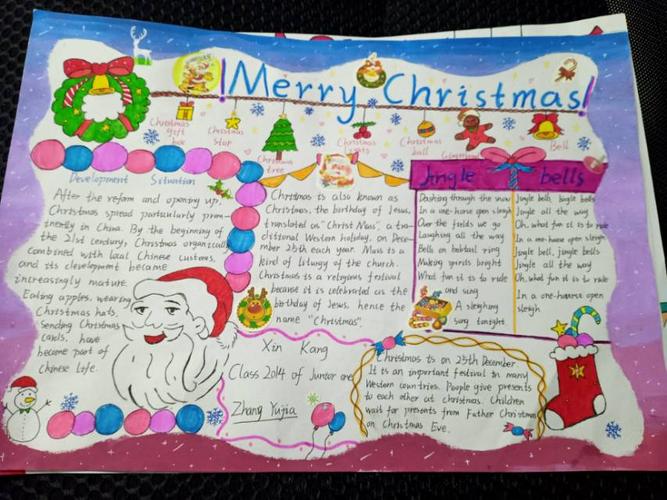 !Merry Christmas!
Christmas
gift
box
Christmas
star
Christmas
tree
Christmas
Christmas
ball
Bell
Development Situation
After the reform and opening up,
Christmas spread particularly prom-
inently in China. By the beginning of
the 21st century, Christmas organically
combined with local Chinese customs,
and its development became
increasingly mature.
Eating apples, wearing
Christmas hats,
sending Christmas
cards, have
become part of
Chinese life.
Christmas is also known as
Christmas, the birthday of Jesus,
translated as "Christ Mass", a tra-
ditional Western holiday, on Dece-
mber 25th each year. Mass is a
kind of liturgy of the church.
Christmas is a religious festival
because it is celebrated as the
birthday of Jesus, hence the
name "Christmas".
Jingle bells
Dashing through the snow
In a one-horse open sleigh
Over the fields we go
Laughing all the way
Bells on bobtail ring
Making spirits bright
What fun it is to ride
and sing
A sleighing
song tonight
Jingle bells, jingle bells
Jingle all the way
Oh, what fun it is to ride
In a one-horse open sleigh
Jingle bell, jingle bells
Jingle all the way
Oh, what fun it is to ride
In a one-horse open
sleigh
Xin Kang
Class 2014 of Junior one
Zhang Yujia
Christmas is on 25th December.
It is an important festival in many
Western countries. People give presents
to each other at christmas. Children
wait for presents from Father Christmas
on Christmas Eve.